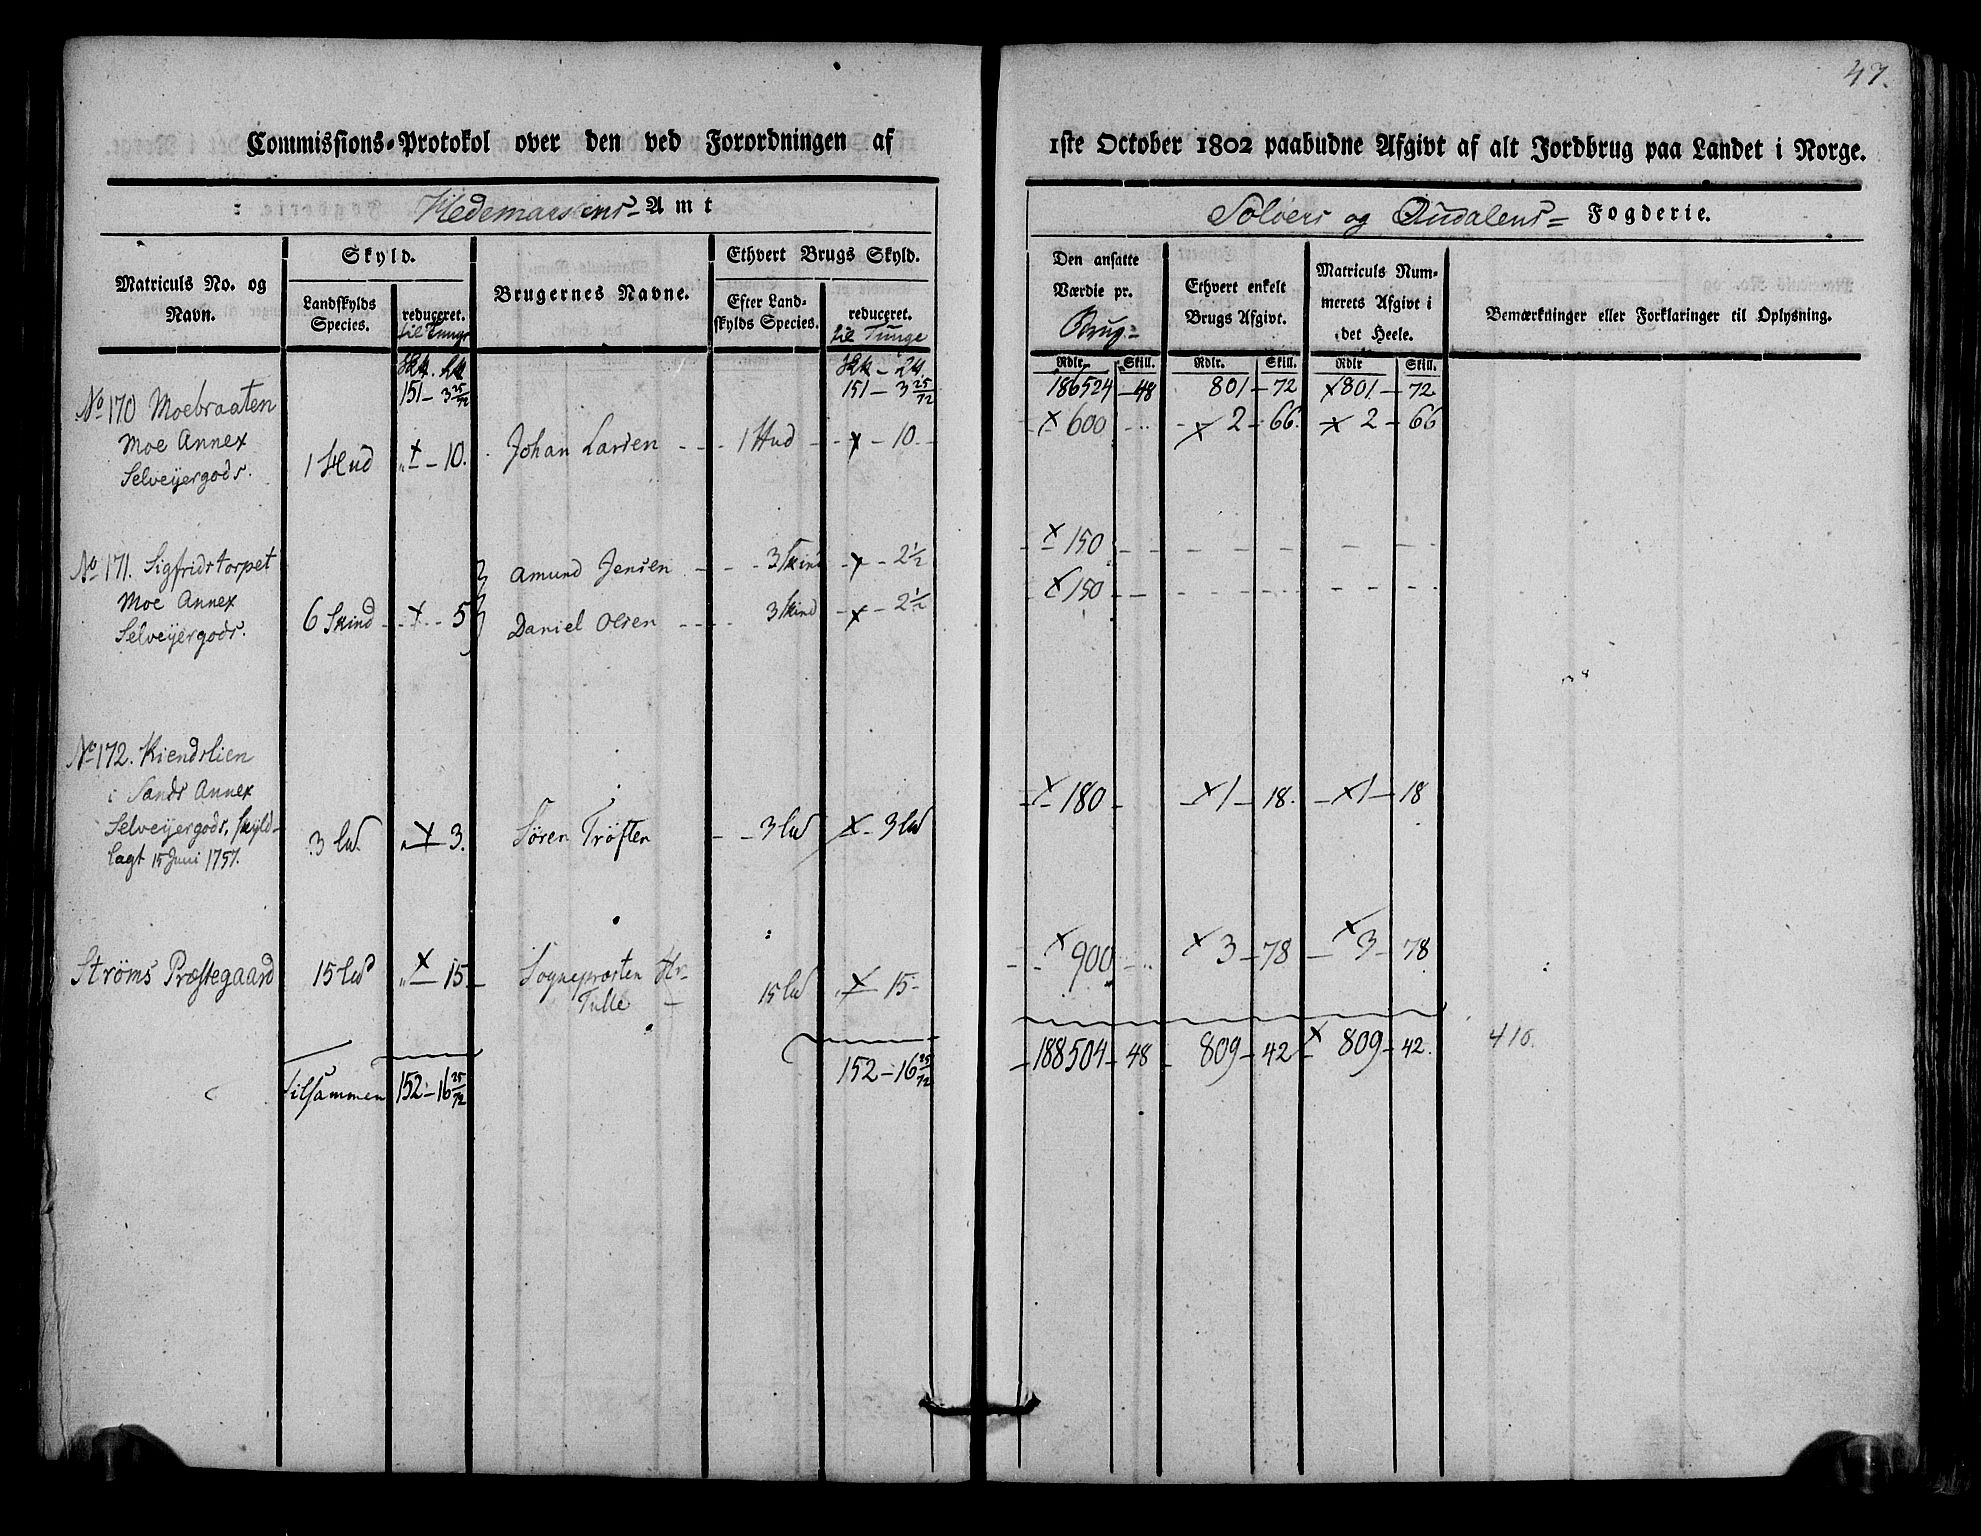 47.
Commissions-Protokol over den ved Forordningen af 1ste October 1802 paabudne Afgivt af alt Jordbrug paa Landet i Norge.
Hedemarkens Amt
Soløers og Oudalens Fogderie.
Matriculs No. og Navn.
Skyld.
Landskylds Species.
reduceret. til Tunge
Brugernes Navne.
Ethvert Brugs Skyld.
Efter Landskylds Species.
reduceret. til Tunge
Den ansatte Værdie pr. Brug
Ethvert enkelt Brugs Afgivt.
Matriculs Nummerets Afgivt i det Heele.
Bemærkninger eller Forklaringer til Oplysning.
Rdlr. Skill. Rdlr. Skill. Rdlr Skill.
151 - 3 25/72 151 - 3 25/72 186524 - 48 801 - 72 x 801 - 72
No 170 Moebraaten
Moe Annex
Selveyergods.
1 Hud x - 10. Johan Larsen 1 Hud x - 10 x 600 x 2 - 66. x 2 - 66
No 171. Sigfridstorpet
Moe Annex
Selveyergods.
6 Skind x - 5
Amund Jensen 3 Skind x - 2½ x 150
Daniel Olsen 3 Skind x - 2½ x 150
No 172. Kiendslien
i Sands Annex
Selveyergods, Skyld-
lagt 15 Juni 1757.
3 lld. x 3. Søren Trøften 3 lld x - 3 lld x 180 x 1 - 18. x 1 - 18
Strøms Præstegaard 15 lld x - 15 Sognepræsten Hr. Tulle 15 lld x - 15 x 900 x 3 - 78 x 3 - 78
Tilsammen 152 - 16 25/72 152 - 16 25/72 188504 - 48 809 - 42 x 809 - 42. 410.